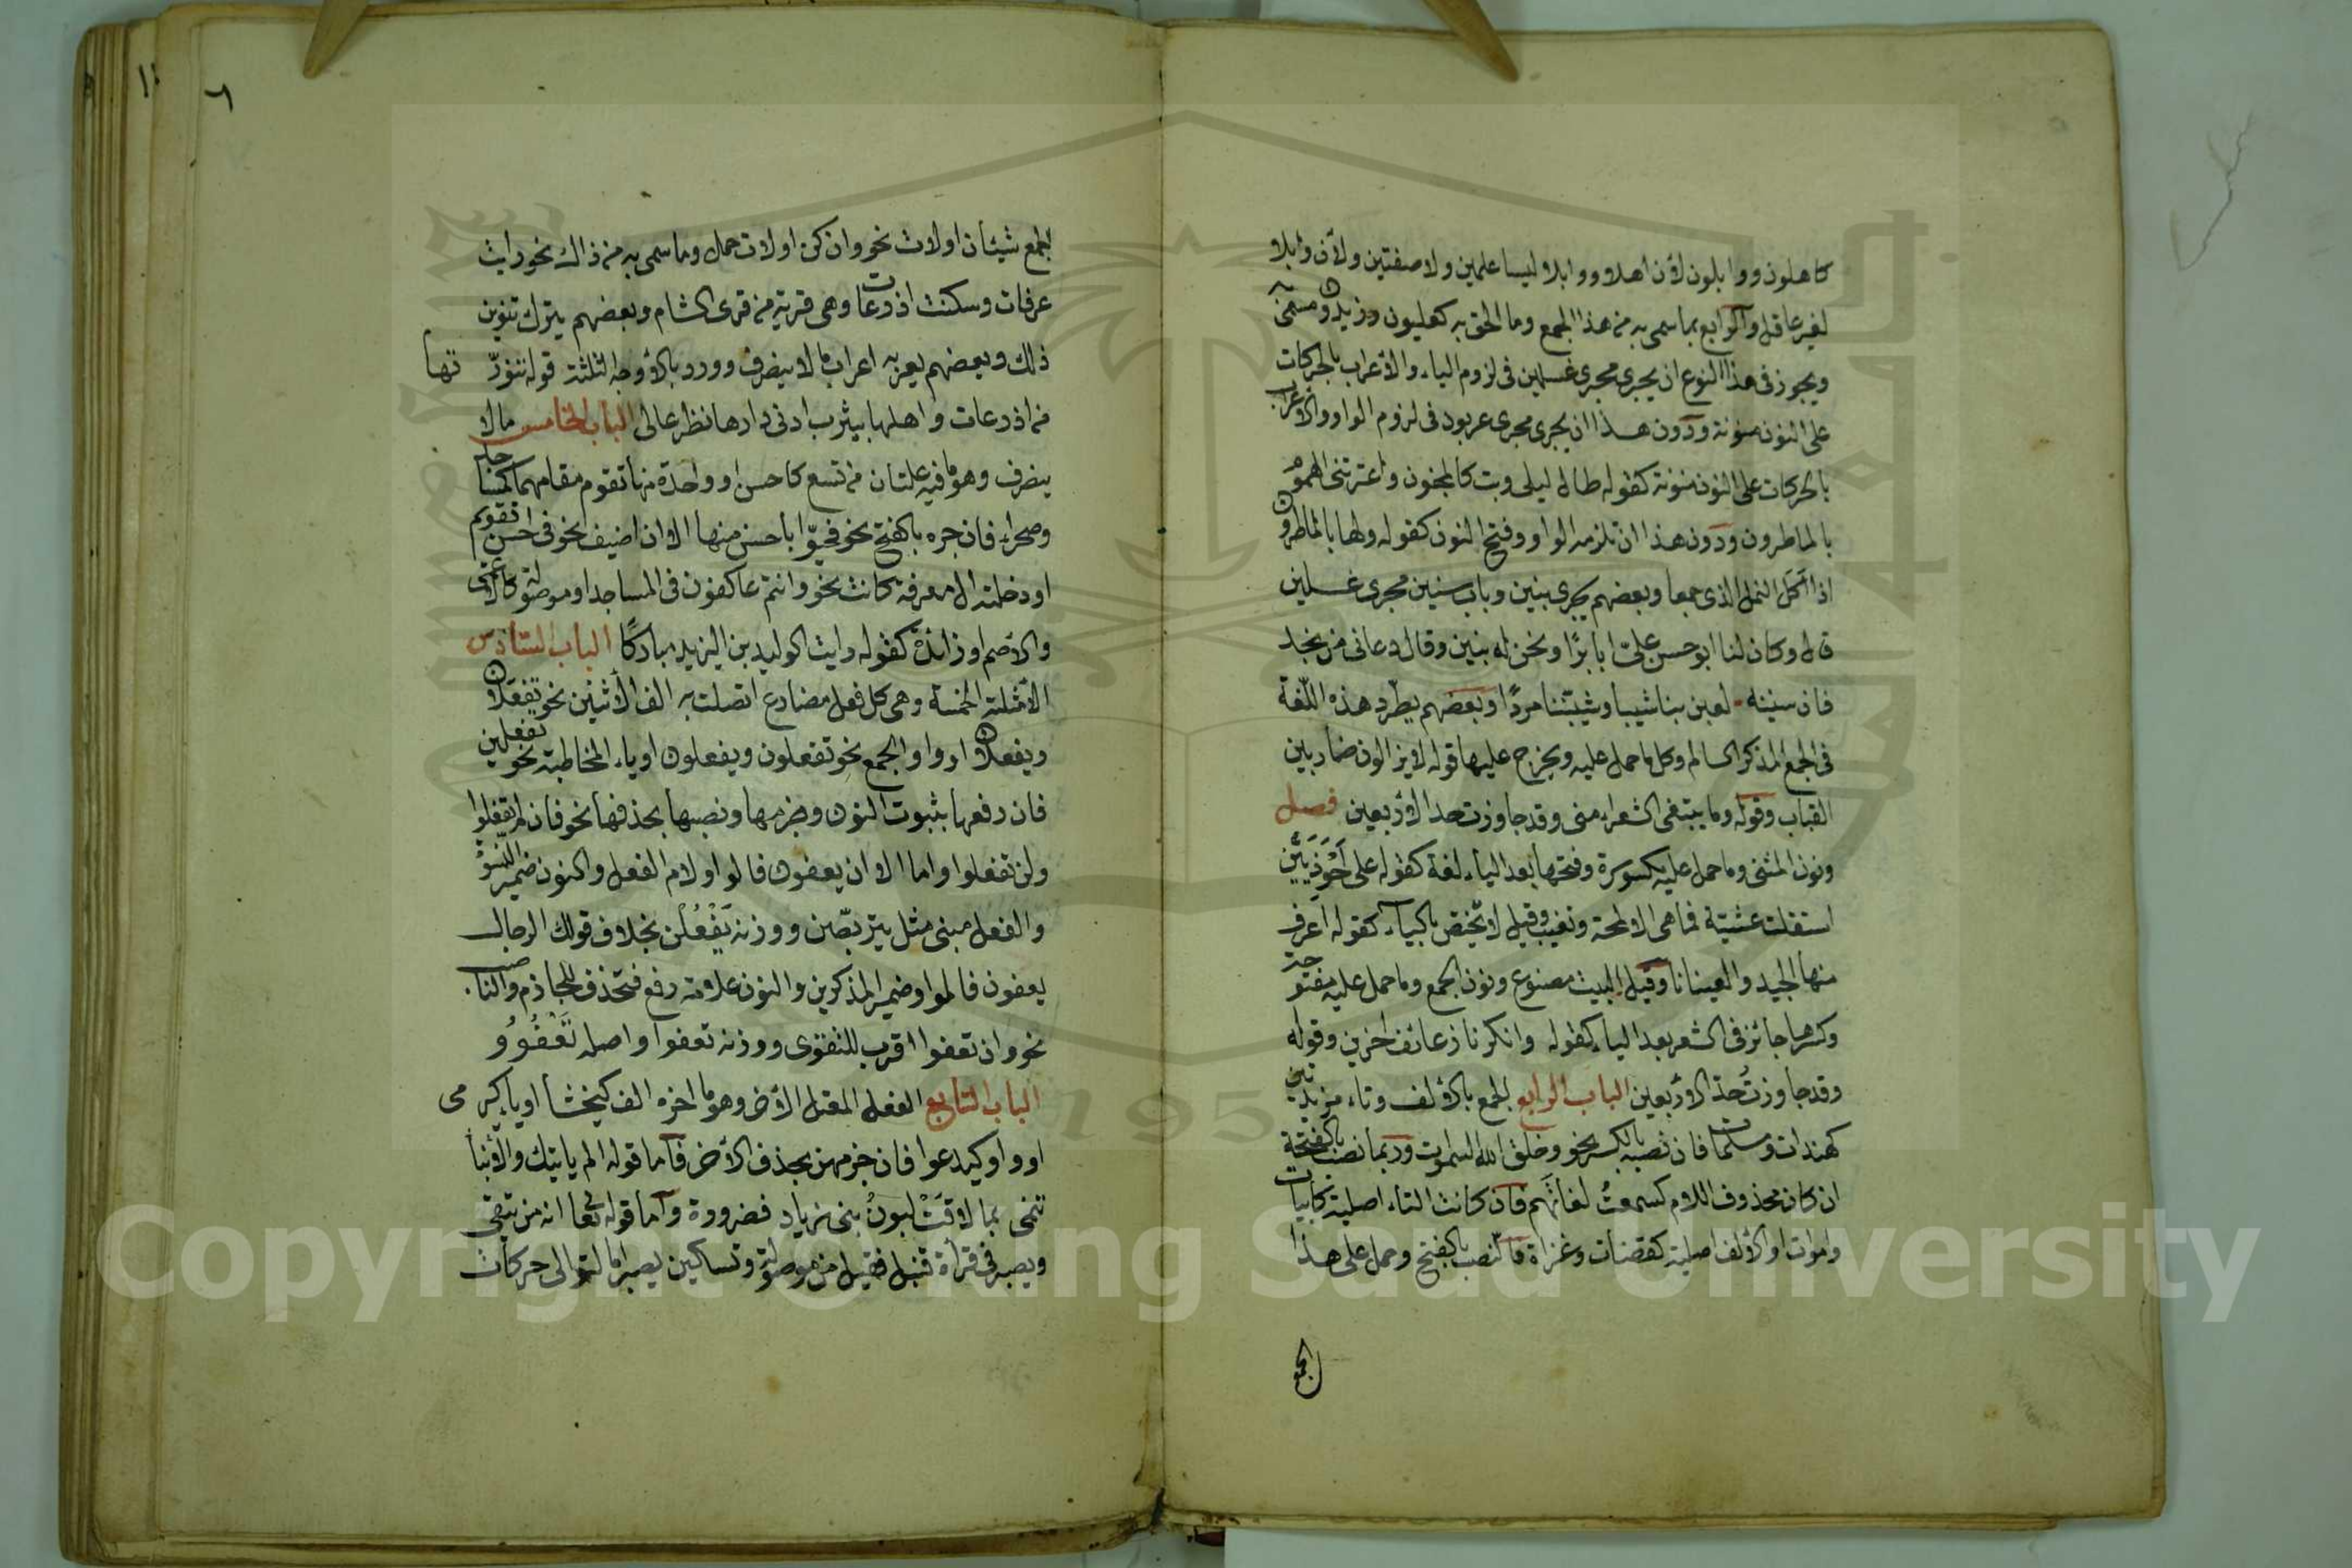 كاهلون ووابلون لأن اهلا ووابلا ليسا علمين ولا صفتين ولأن وابلا
لغير عاقل والرابع بما سمى به من هذا الجمع وما الحق به كعليون وزيدون مسمى
ويجوز فى هذا النوع ان يجرى مجرى غسلين فى لزوم الياء والأعراب بالحركات
على النون منونة ودون هذا ان يجرى مجرى عربود فى لزوم الواو والاعراب
بالحركات على النون منونة كقوله طال ليلى وبت كالمجنون واعترتنى الهموم
بالماطرون ودون هذا ان تلزمه الواو وفتح النون كقوله ولها بالماطرون
اذا اكل النمل الذى جمعا وبعضهم يجرى بنين وباب سنين مجرى غسلين
قال وكان لنا ابو حسن على ابا برًا ونحن له بنين وقال دعانى من نجد
فان سنينه لعبن بنا شيبا وشيبننا مردًا وبعضهم يطّرد هذه اللّغة
فى الجمع المذكر السالم وكل ما حمل عليه ويخرج عليها قوله لا يزالون ضاربين
القباب وقوله وما يبتغى الشعراء منى وقد جاوزت حد الاربعين فصل
ونون المثنى وما حمل عليه مكسورة وفتحها بعد الياء لغة كقوله على أحوذيين
استقلت عشيّة فما هى الا لمحة وتغيب وقيل لا يختص بالياء كقوله اعرف
منها الجيد والعينانا وقيل البيت مصنوع ونون الجمع وما حمل عليه مفتوحة
وكسرها جائز فى الشعر بعد الياء كقوله وانكرنا زعانف اخرين وقوله
وقد جاوزتُ حدّ الاربعين الباب الرابع الجمع بالالف وتاء مزيدتين
كهندات ومسلمات فان نصبه بالكسر نحو وخلق الله السموات وربما نصب بالفتحة
ان كان محذوف اللام كسمعتُ لغاتَهم فان كانت التاء اصلية كابيات
واموات او الالف اصلية كقضات وغزاة فالنصب بالفتح وحمل على هذا
الجمع
٦
الجمع شيئان اولات نحو وان كن اولات حمل وما سمى به من ذالك نحو رايت
عرفات وسكنت اذرعات وهى قرية من قرى الشام وبعضهم يترك تنوين
ذلك وبعضهم يعربه اعراب ما لا ينصرف وورد بالأوجه الثلثة قوله تنوّرتها
من اذرعات واهلها بيثرب ادنى دارها نظر عالى الباب الخامس ما لا
ينصرف وهو ما فيه علتان من تسع كاحسن او واحدة منها تقوم مقامهما كمساجد
وصحراء فان جره بالفتح نحو فحيّوا بأحسن منها الا ان اضيف نحو فى احسن تقويم
او دخلته ال معرفة كانت نحو وانتم عاكفون فى المساجد او موصولة كالاعمى
والاصم او زائدة كقوله رايت الوليد بن اليزيد مباركًا الباب السادس
الأمثلة الخمسة وهى كل فعل مضارع اتصلت به الف الأثنين نحو تفعلان
ويفعلان او واو الجمع نحو تفعلون ويفعلون او ياء المخاطبة نحو تفعلين
فان رفعها بثبوت النون وجزمها ونصبها بحذفها نحو فان لم تفعلوا
ولن تفعلوا واما الا ان يعفون فالواو لام الفعل والنون ضمير النسوة
والفعل مبنى مثل يتربّصن ووزنه يَفْعُلْن بخلاف قولك الرجال
يعفون فالواو ضمير المذكرين والنون علامة رفع فتحذف للجازم والناصب
نحو وان تعفوا اقرب للتقوى ووزنه تعفوا واصله تَعْفُوُو
الباب السابع الفعل المعتل الأخر وهو ما اخره الف كيخشا او ياء كيرمى
او واو كيدعوا فان جزمهن بحذف الأخر فاما قوله الم يأتيك والأنبا
تنمى بما لاقَتْ لبونُ بنى زياد فضرورة واما قوله تعا انه من يتقى
ويصبر فى قراة قنبل فقيل من موصولة وتسكين يصبر اما لتوالى حركات